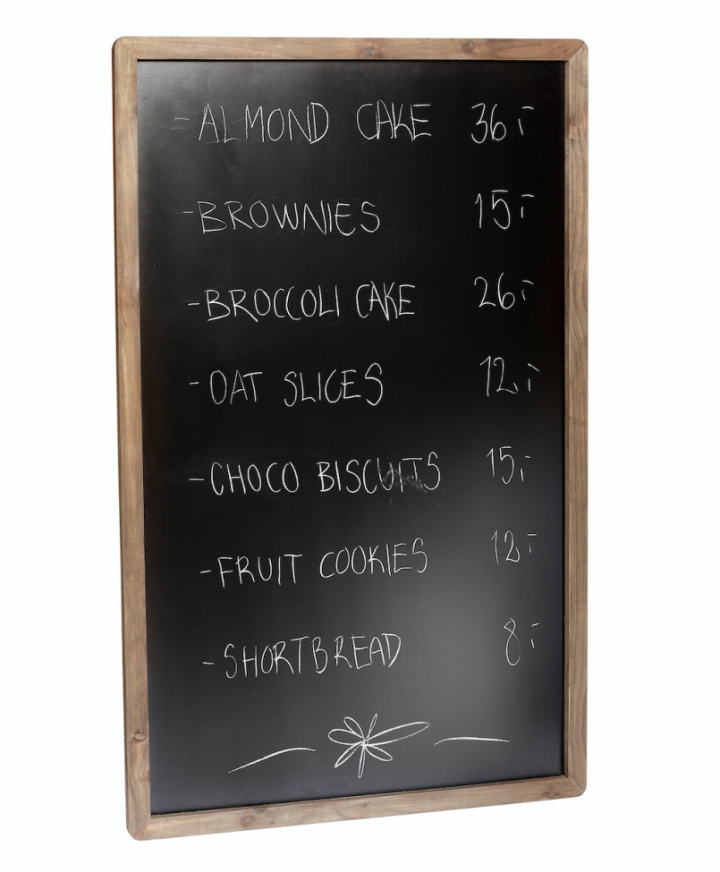 - ALMOND CAKE 36:-
- BROWNIES 15:-
- BROCCOLI CAKE 26:-
- OAT SLICES 12:-
- CHOCO BISCUITS 15:-
- FRUIT COOKIES 12:-
- SHORTBREAD 8:-